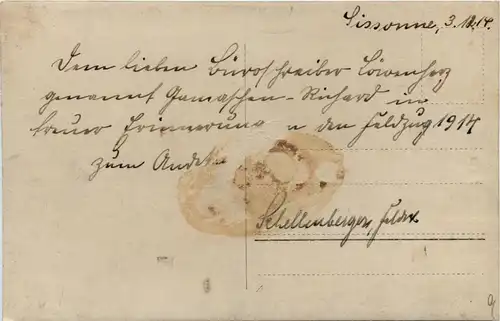 Sissonne, 3.12.14.
Dem lieben Büroschreiber Löwenherz
genannt Gamaschen-Richard in
treuer Erinnerung den Feldzug 1914
zum
Schellenberger,